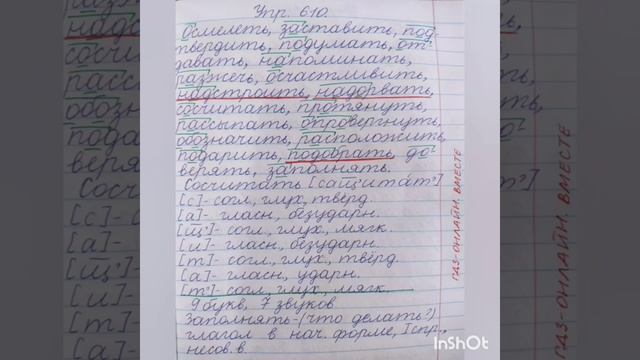 Упр. 610.
Осмелеть, заставить, под-
твердить, подумать, от-
давать, напоминать,
разжечь, осчастливить,
надстроить, надорвать,
сосчитать, протянуть,
рассыпать, опровергнуть,
обозначить, расположить,
подарить, подобрать, до-
верять, заполнять.
Сосчитать [сащ'ита́т']
[с]- согл., глух., твёрд.
[а]- гласн., безударн.
[щ']- согл., глух., мягк.
[и]- гласн., безударн.
[т]- согл., глух., твёрд.
[а]- гласн., ударн.
[т']- согл., глух., мягк.
9 букв, 7 звуков
Заполнять-(что делать?)
глагол в нач. форме, I спр.,
несов. в.
ГДЗ-ОНЛАЙН. ВМЕСТЕ
InShOt